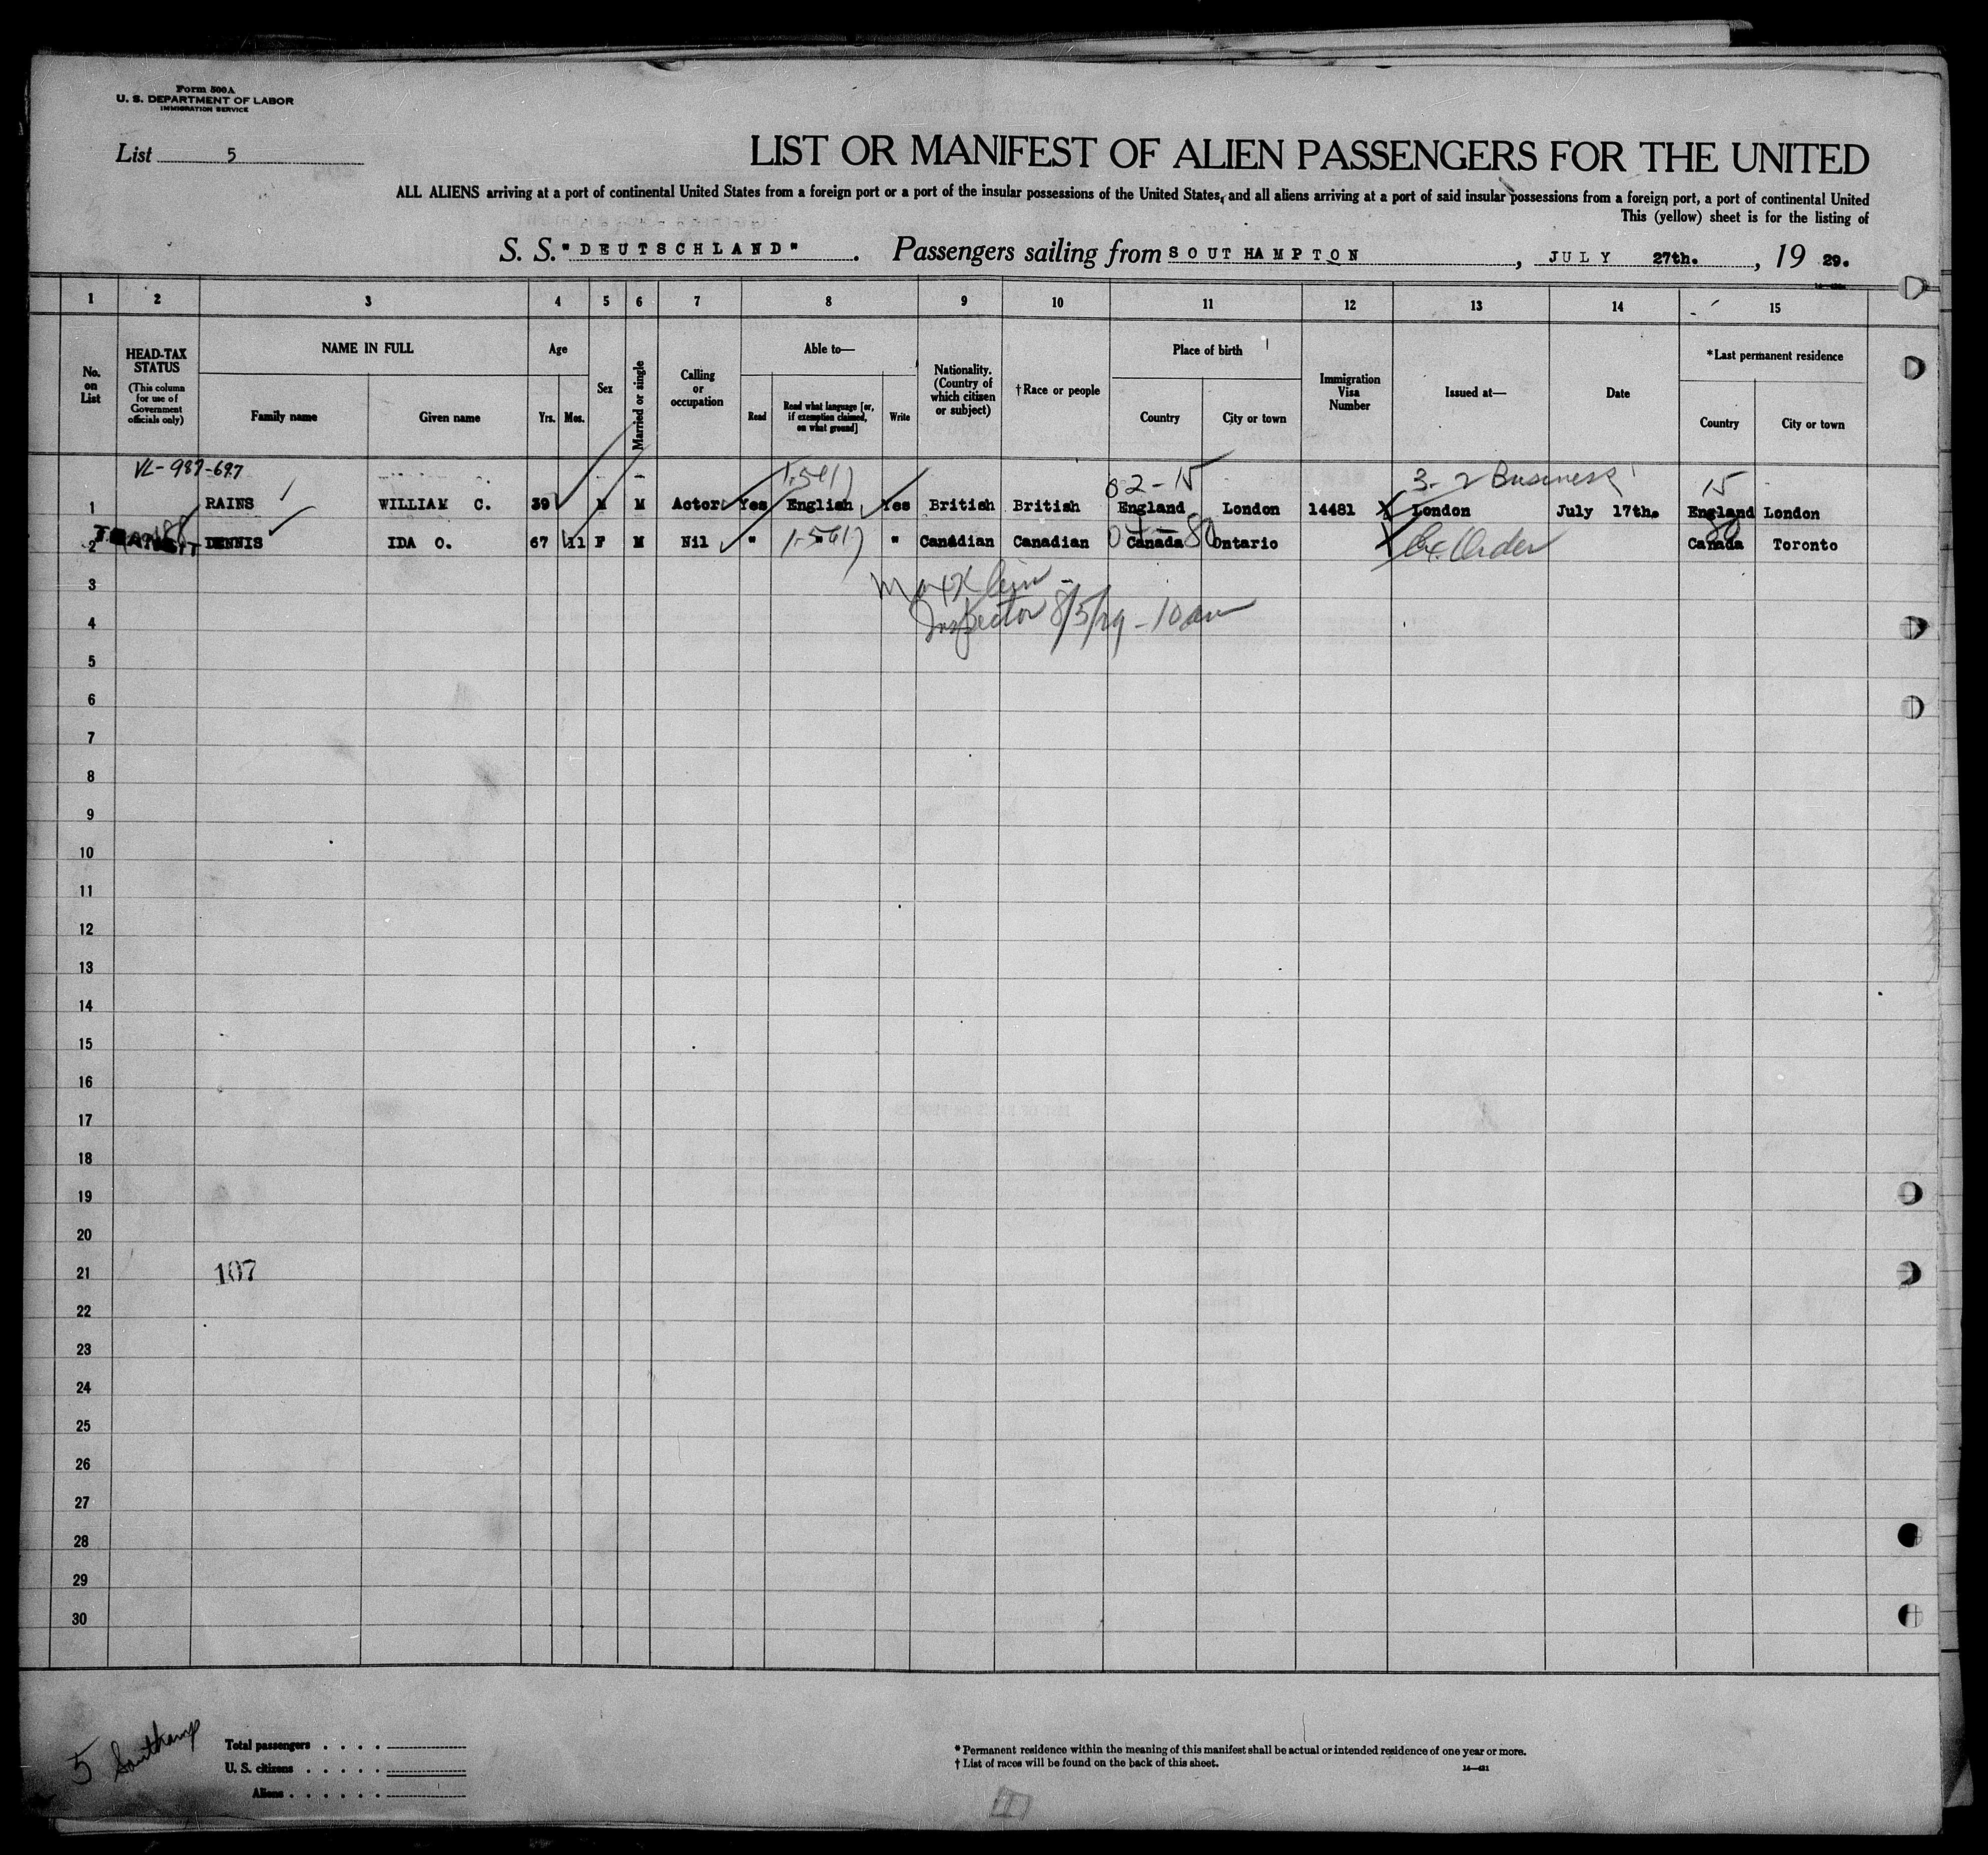 Form 500A
U. S. DEPARTMENT OF LABOR
IMMIGRATION SERVICE
List 5
LIST OR MANIFEST OF ALIEN PASSENGERS FOR THE UNITED
ALL ALIENS arriving at a port of continental United States from a foreign port or a port of the insular possessions of the United States, and all aliens arriving at a port of said insular possessions from a foreign port, a port of continental United
This (yellow) sheet is for the listing of
S. S. "DEUTSCHLAND". Passengers sailing from SOUTHAMPTON, JULY 27th., 19 29.
1 2 3 4 5 6 7 8 9 10 11 12 13 14 15
No. on List
HEAD-TAX STATUS (This column for use of Government officials only)
NAME IN FULL
Family name
Given name
Age
Yrs.
Mos.
Sex
Married or single
Calling or occupation
Able to—
Read
Read what language [or, if exemption claimed, on what ground]
Write
Nationality. (Country of which citizen or subject)
†Race or people
Place of birth
Country
City or town
Immigration Visa Number
Issued at—
Date
*Last permanent residence
Country
City or town
VL-987-697
02-15 3-2 Business 15
1 RAINS WILLIAM C. 39 M M Actor Yes English Yes British British England London 14481 London July 17th. England London
TRANSIT
2 DENNIS IDA O. 67 11 F M Nil " " " Canadian Canadian Canada Ontario Ex. Order Canada Toronto
80
3
Inspector 8/5/29 - 10 am
4
5
6
7
8
9
10
11
12
13
14
15
16
17
18
19
20
21 107
22
23
24
25
26
27
28
29
30
5 Southamp
Total passengers . . . .
U. S. citizens . . . . .
Aliens . . . . . .
* Permanent residence within the meaning of this manifest shall be actual or intended residence of one year or more.
† List of races will be found on the back of this sheet.